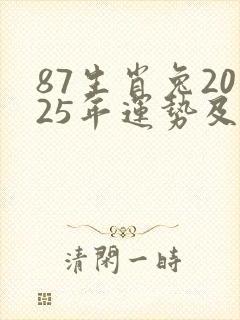 87生肖兔20
25年運勢及
清閑一時